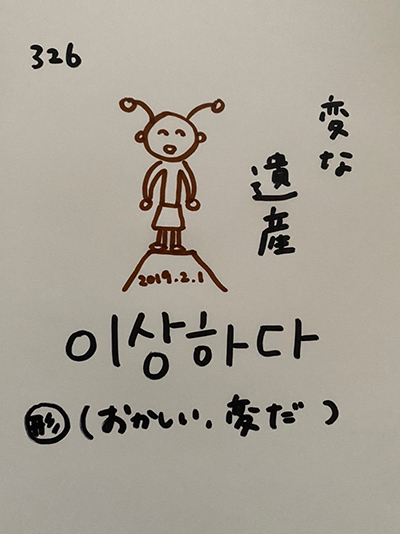 326
変な
遺産
2019.2.1
이상하다
形(おかしい、変だ)